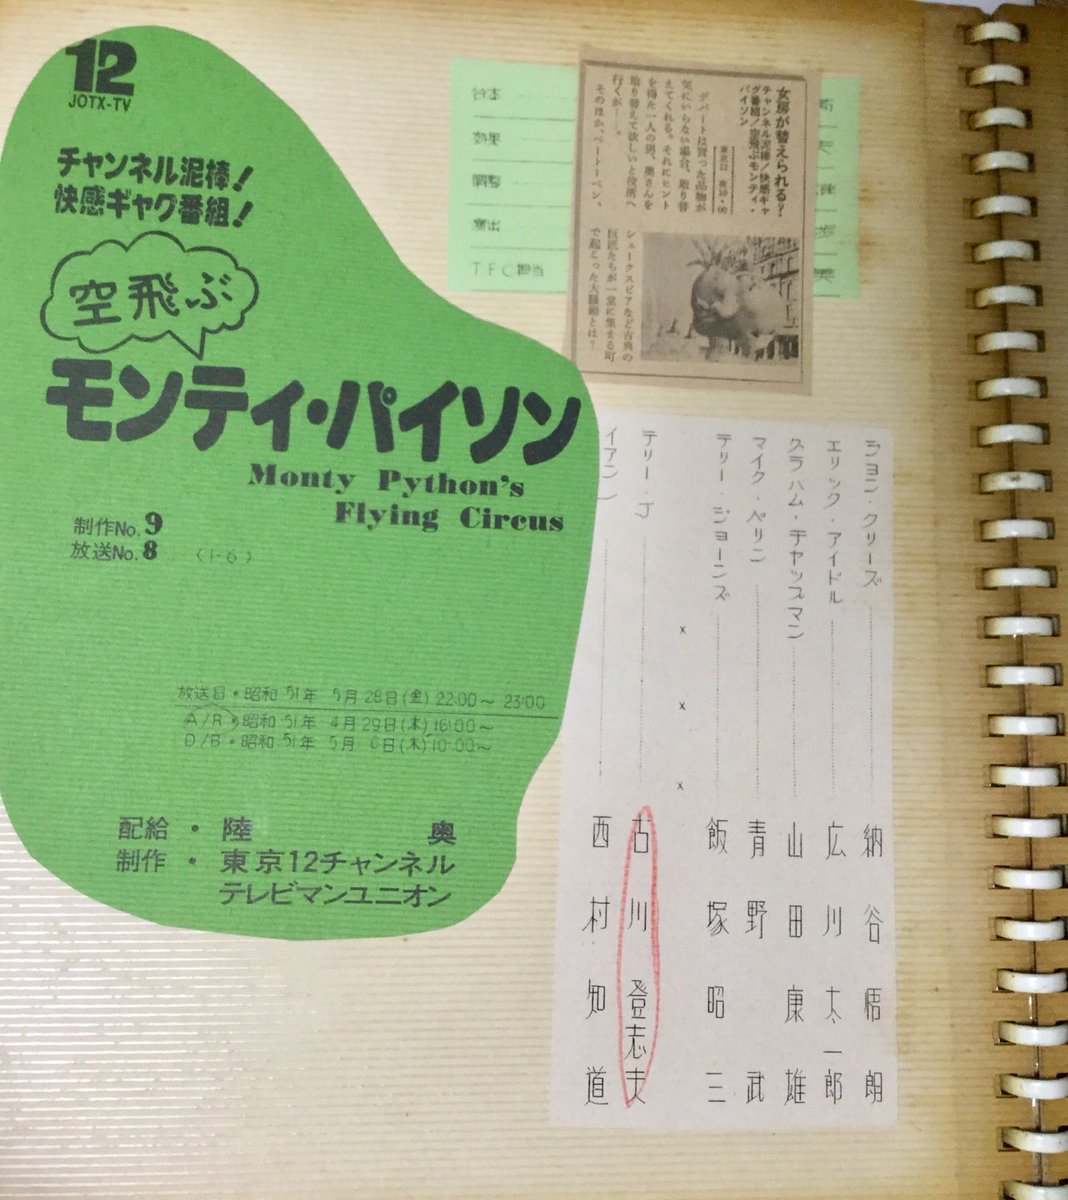 12
JOTX-TV
チャンネル泥棒!
快感ギャグ番組!
空飛ぶ
モンティ・パイソン
Monty Python's
Flying Circus
制作No.9
放送No.8
(1-6)
放送日・昭和51年 5月28日(金)22:00〜23:00
A/R・昭和51年 4月29日(木)16:00〜
D/B・昭和51年 5月 6日(木)10:00〜
配給・陸奥
制作・東京12チャンネル
テレビマンユニオン
台本
効果
調整
演出
TFC担当
女房が替えられる?
チャンネル泥棒/快感ギャ
グ番組/空飛ぶモンティ・
パイソン
東京12 夜10・00
デパートは買った品物が
気にいらない場合、取り替
えてくれる。それにヒント
を得た一人の男、奥さんを
取り替えて欲しいと役所へ
行くが…。
そのほか、ベートーベン、
シェークスピアなど古典の
巨匠たちが一堂に集まる町
で起こった大騒動とは?
ジョン・クリーズ 納谷悟朗
エリック・アイドル 広川太一郎
グラハム・チャップマン 山田康雄
マイク・ペリン 青野武
テリー・ジョーンズ 飯塚昭三
× × ×
テリー・J 古川登志夫
イアン 西村知道